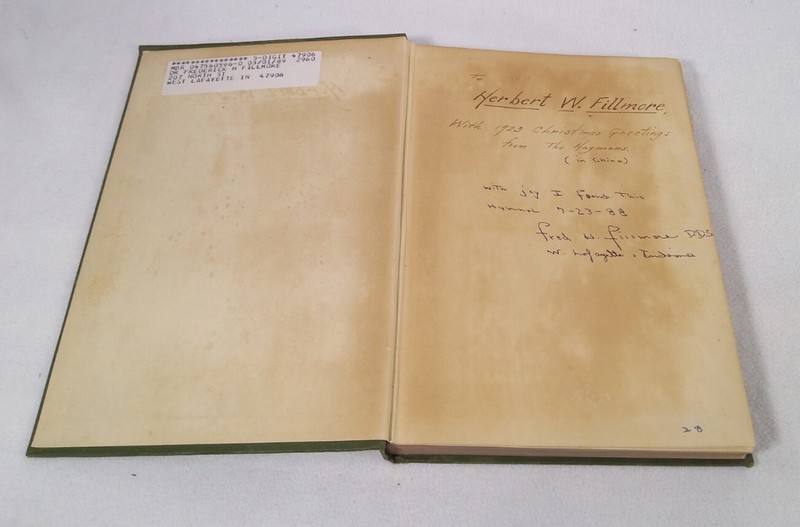 **************** 5-DIGIT 47906
MBR 047560596-0 03/01/89 2960
DR FREDERICK H FILLMORE
202 NORTH ST
WEST LAFAYETTE IN 47906
To
Herbert W. Fillmore,
With 1923 Christmas Greetings
from The Haymans.
(in China)
With joy I found This
Hymnal 7-23-88
Fred W. Fillmore DDS
W. Lafayette, Indiana
28